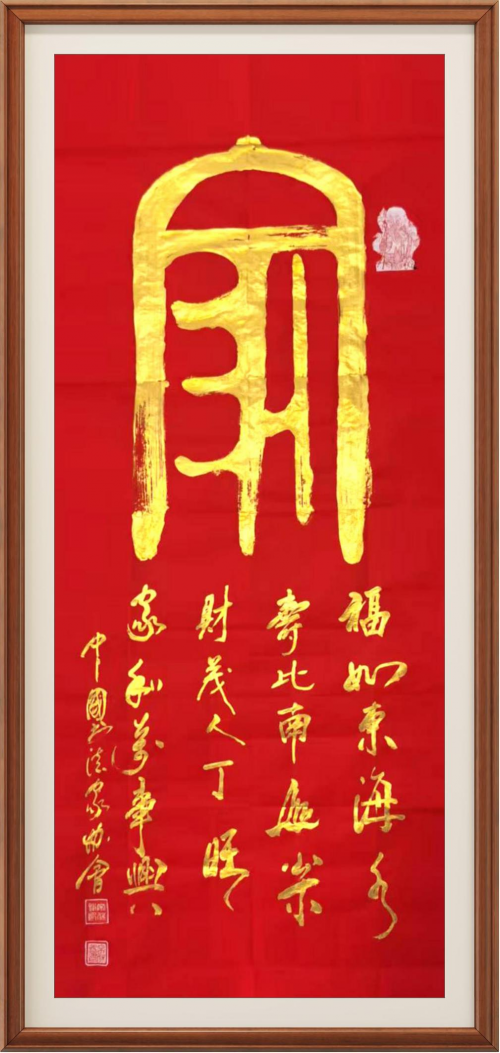 家
福如東海水
壽比南崇
財茂人丁旺
家和萬事興
中國书法家协會